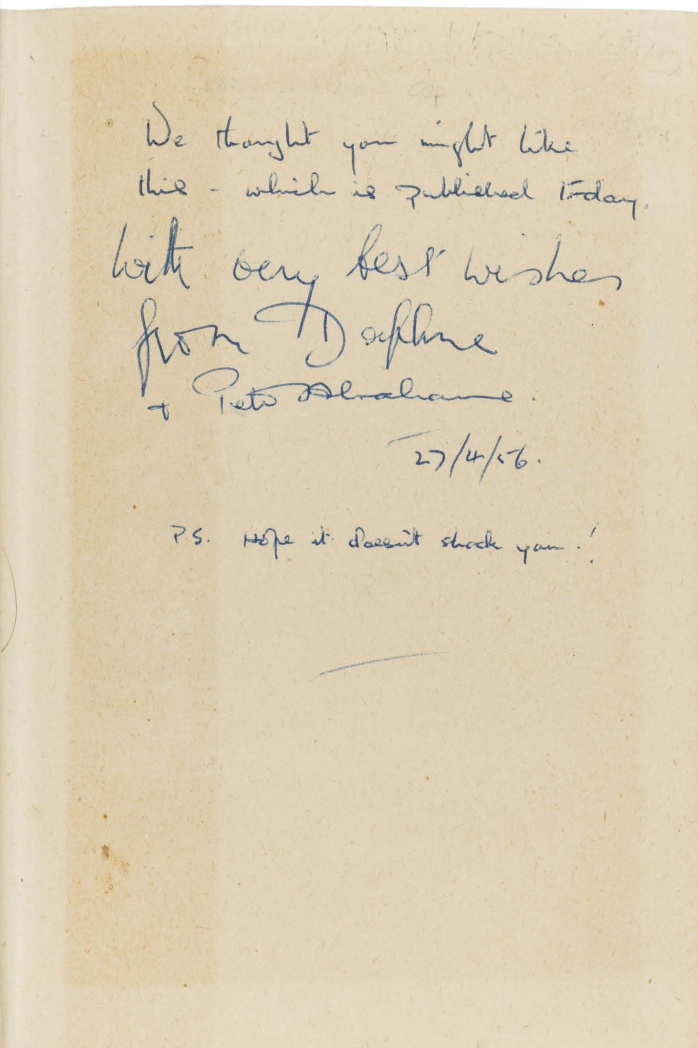 We thought you might like
this - which is published today.
With very best wishes
from Daphne
+ Peter Abrahams.
27/4/56.
P.S. Hope it doesn't shock you.!